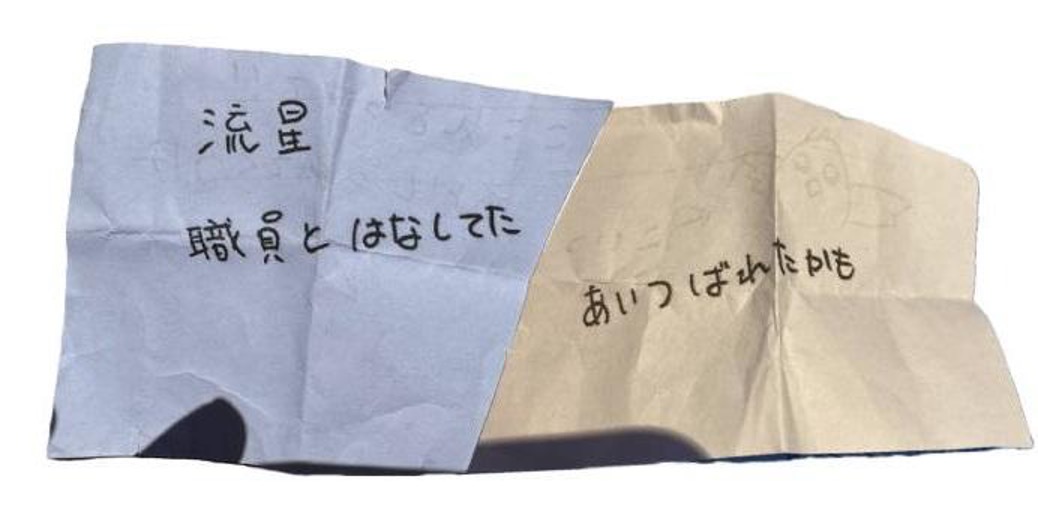 流星
職員とはなしてた
あいつばれたかも